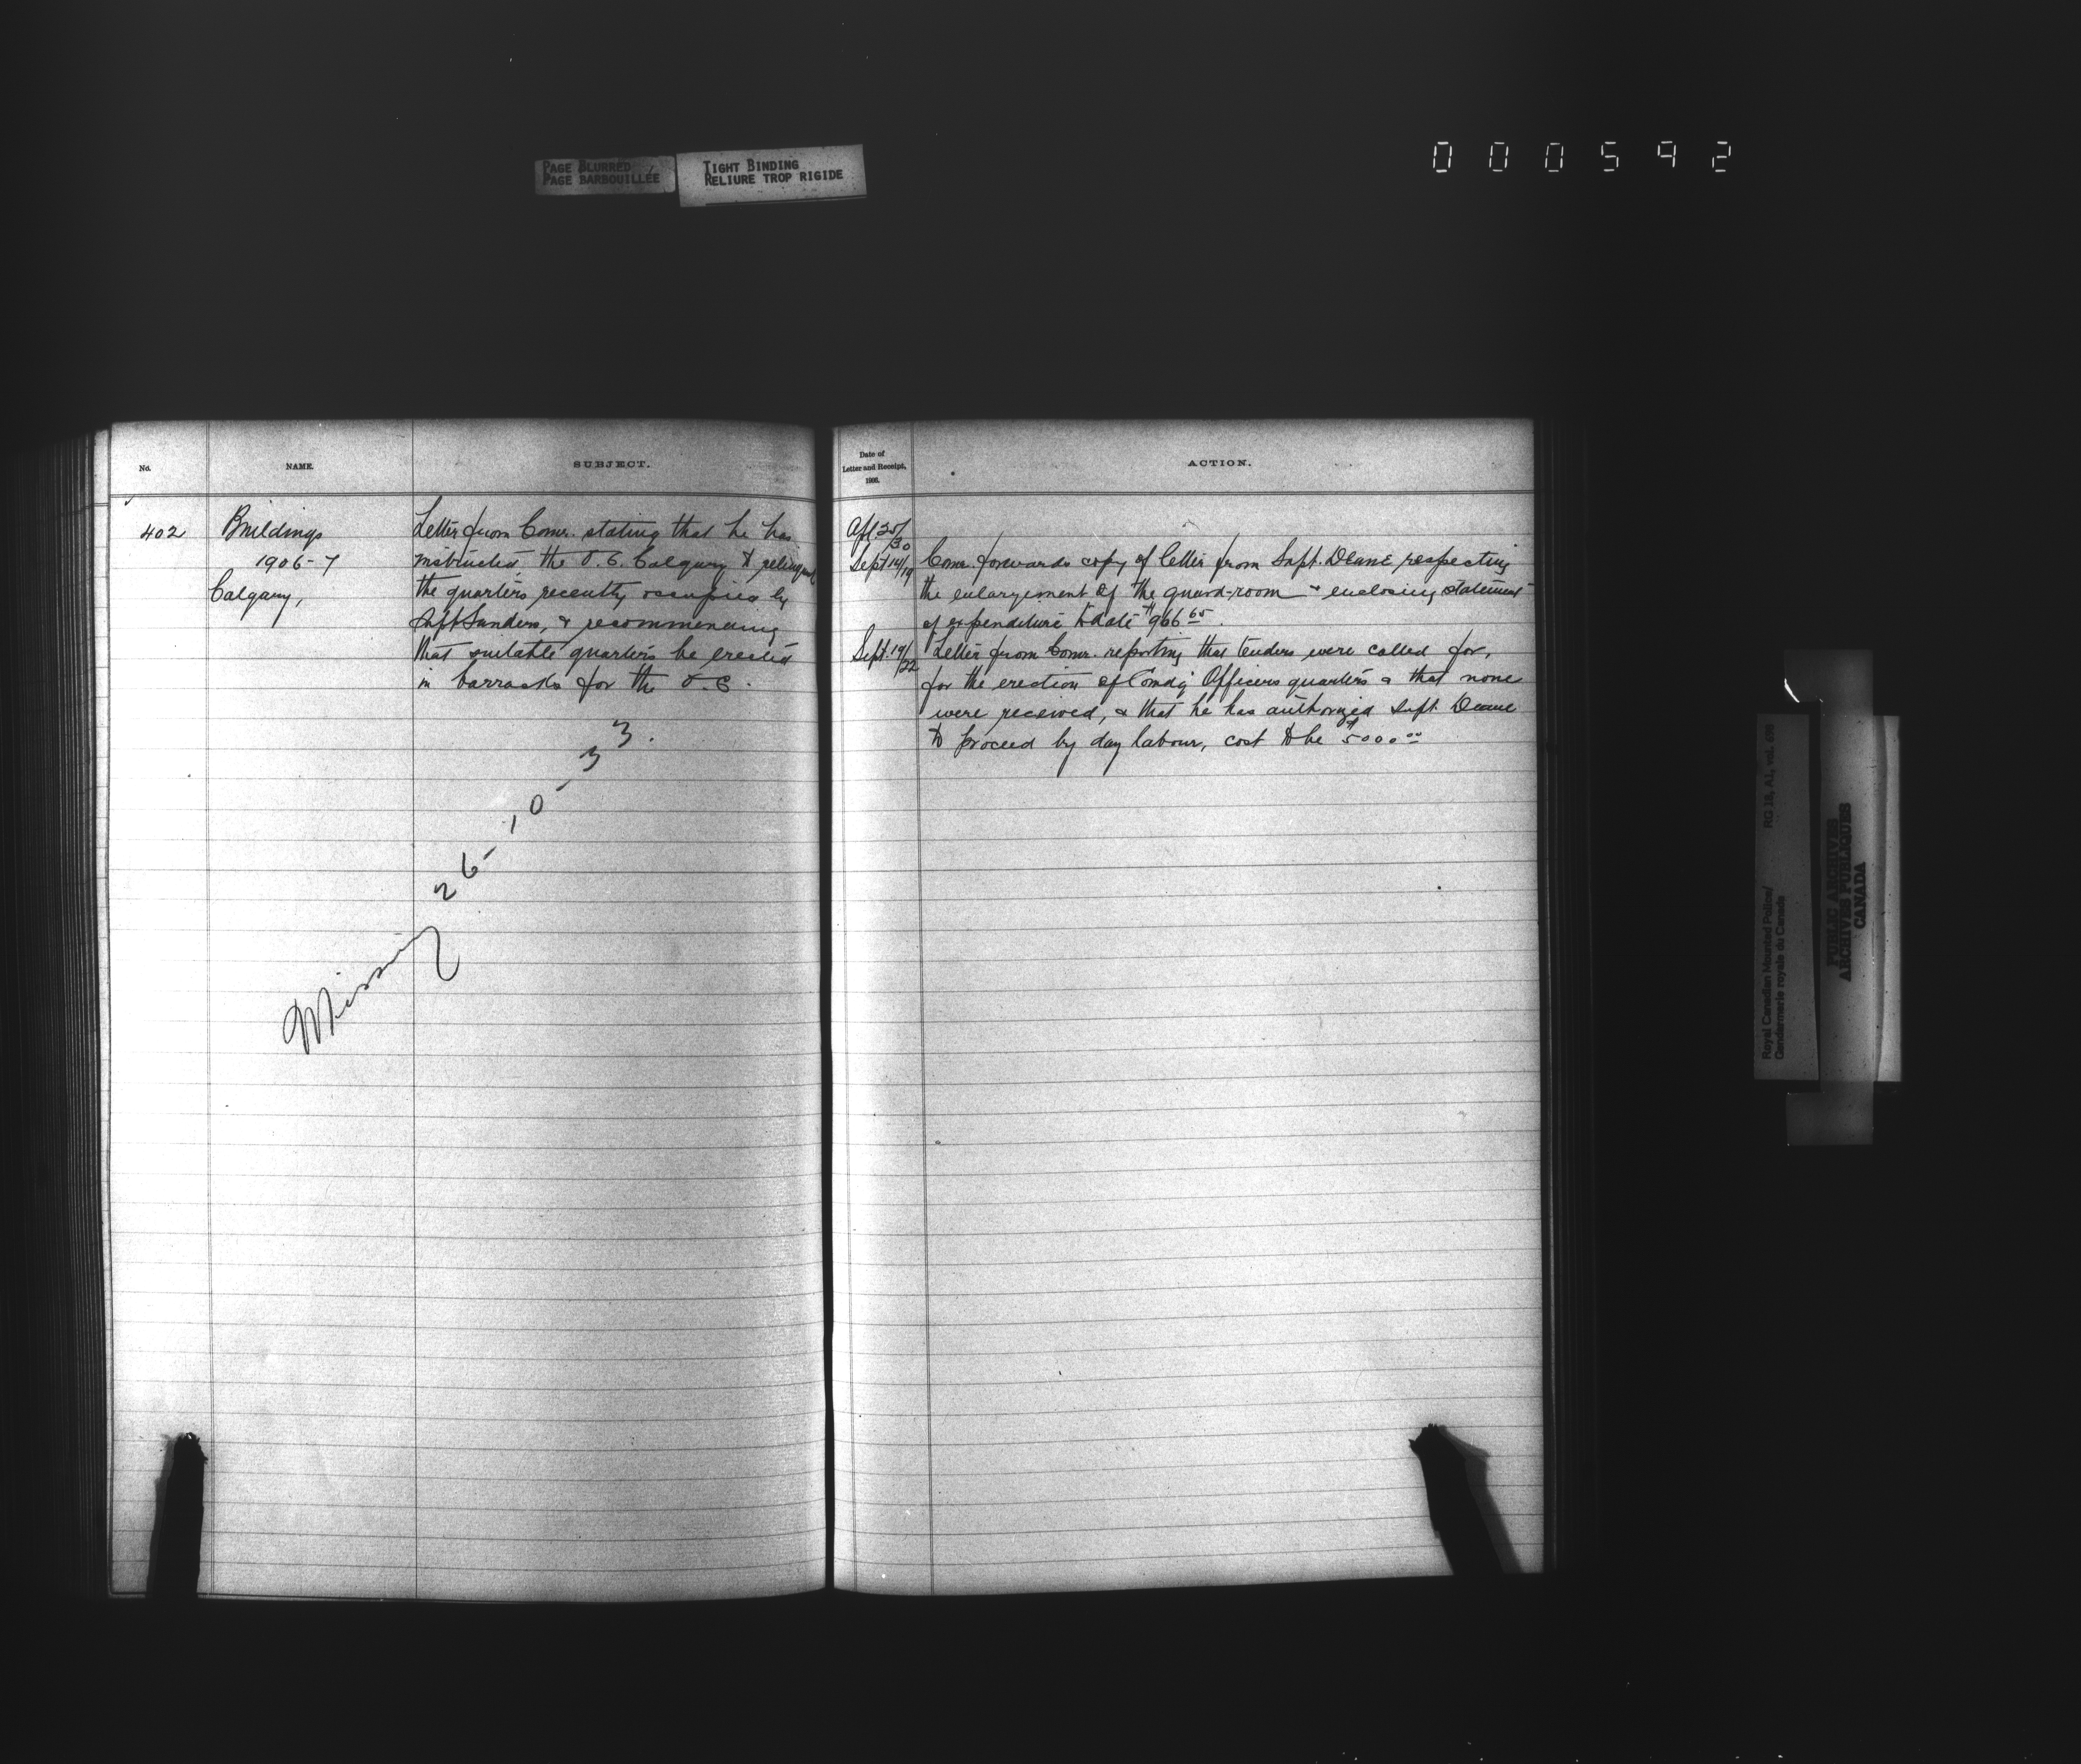 PAGE BLURRED
PAGE BARBOUILLÉE
TIGHT BINDING
RELIURE TROP RIGIDE
000592
No. NAME. SUBJECT.
402 Buildings
1906-7
Calgary,
Letter from Comr. stating that he has
instructed the O.C. Calgary to relinquish
the quarters recently occupied by
Supt Sanders, & recommending
that suitable quarters be erected
in barracks for the O.C.
Missing 26-10-33.
Date of
Letter and Receipt,
1906.
ACTION.
Apl 25/30
Sept 14/19 Comr. forwards copy of letter from Supt. Deane respecting
the enlargement of the guard-room & enclosing statement
of expenditure to date $966 65.
Sept. 19/22 Letter from Comr. reporting that tenders were called for,
for the erection of Comdg Officers quarters & that none
were received, & that he has authorized Supt. Deane
to proceed by day labour, cost to be $5000 00
Royal Canadian Mounted Police/
Gendarmerie royale du Canada
RG 18, A1, vol.
PUBLIC ARCHIVES
ARCHIVES PUBLIQUES
CANADA